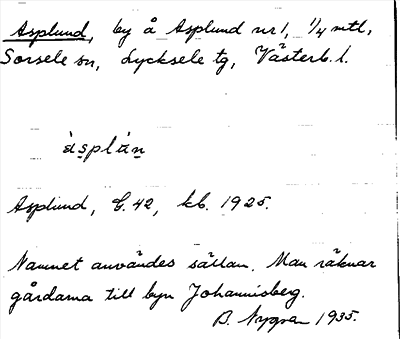 Asplund, by å Asplund nr 1, 1/4 mtl,
Sorsele sn, Lycksele tg, Västerb. l.
àsplán
Asplund, G.42, kb. 1925.
Namnet användes sällan. Man räknar
gårdarna till byn Johannisberg.
B. Nygren 1935.